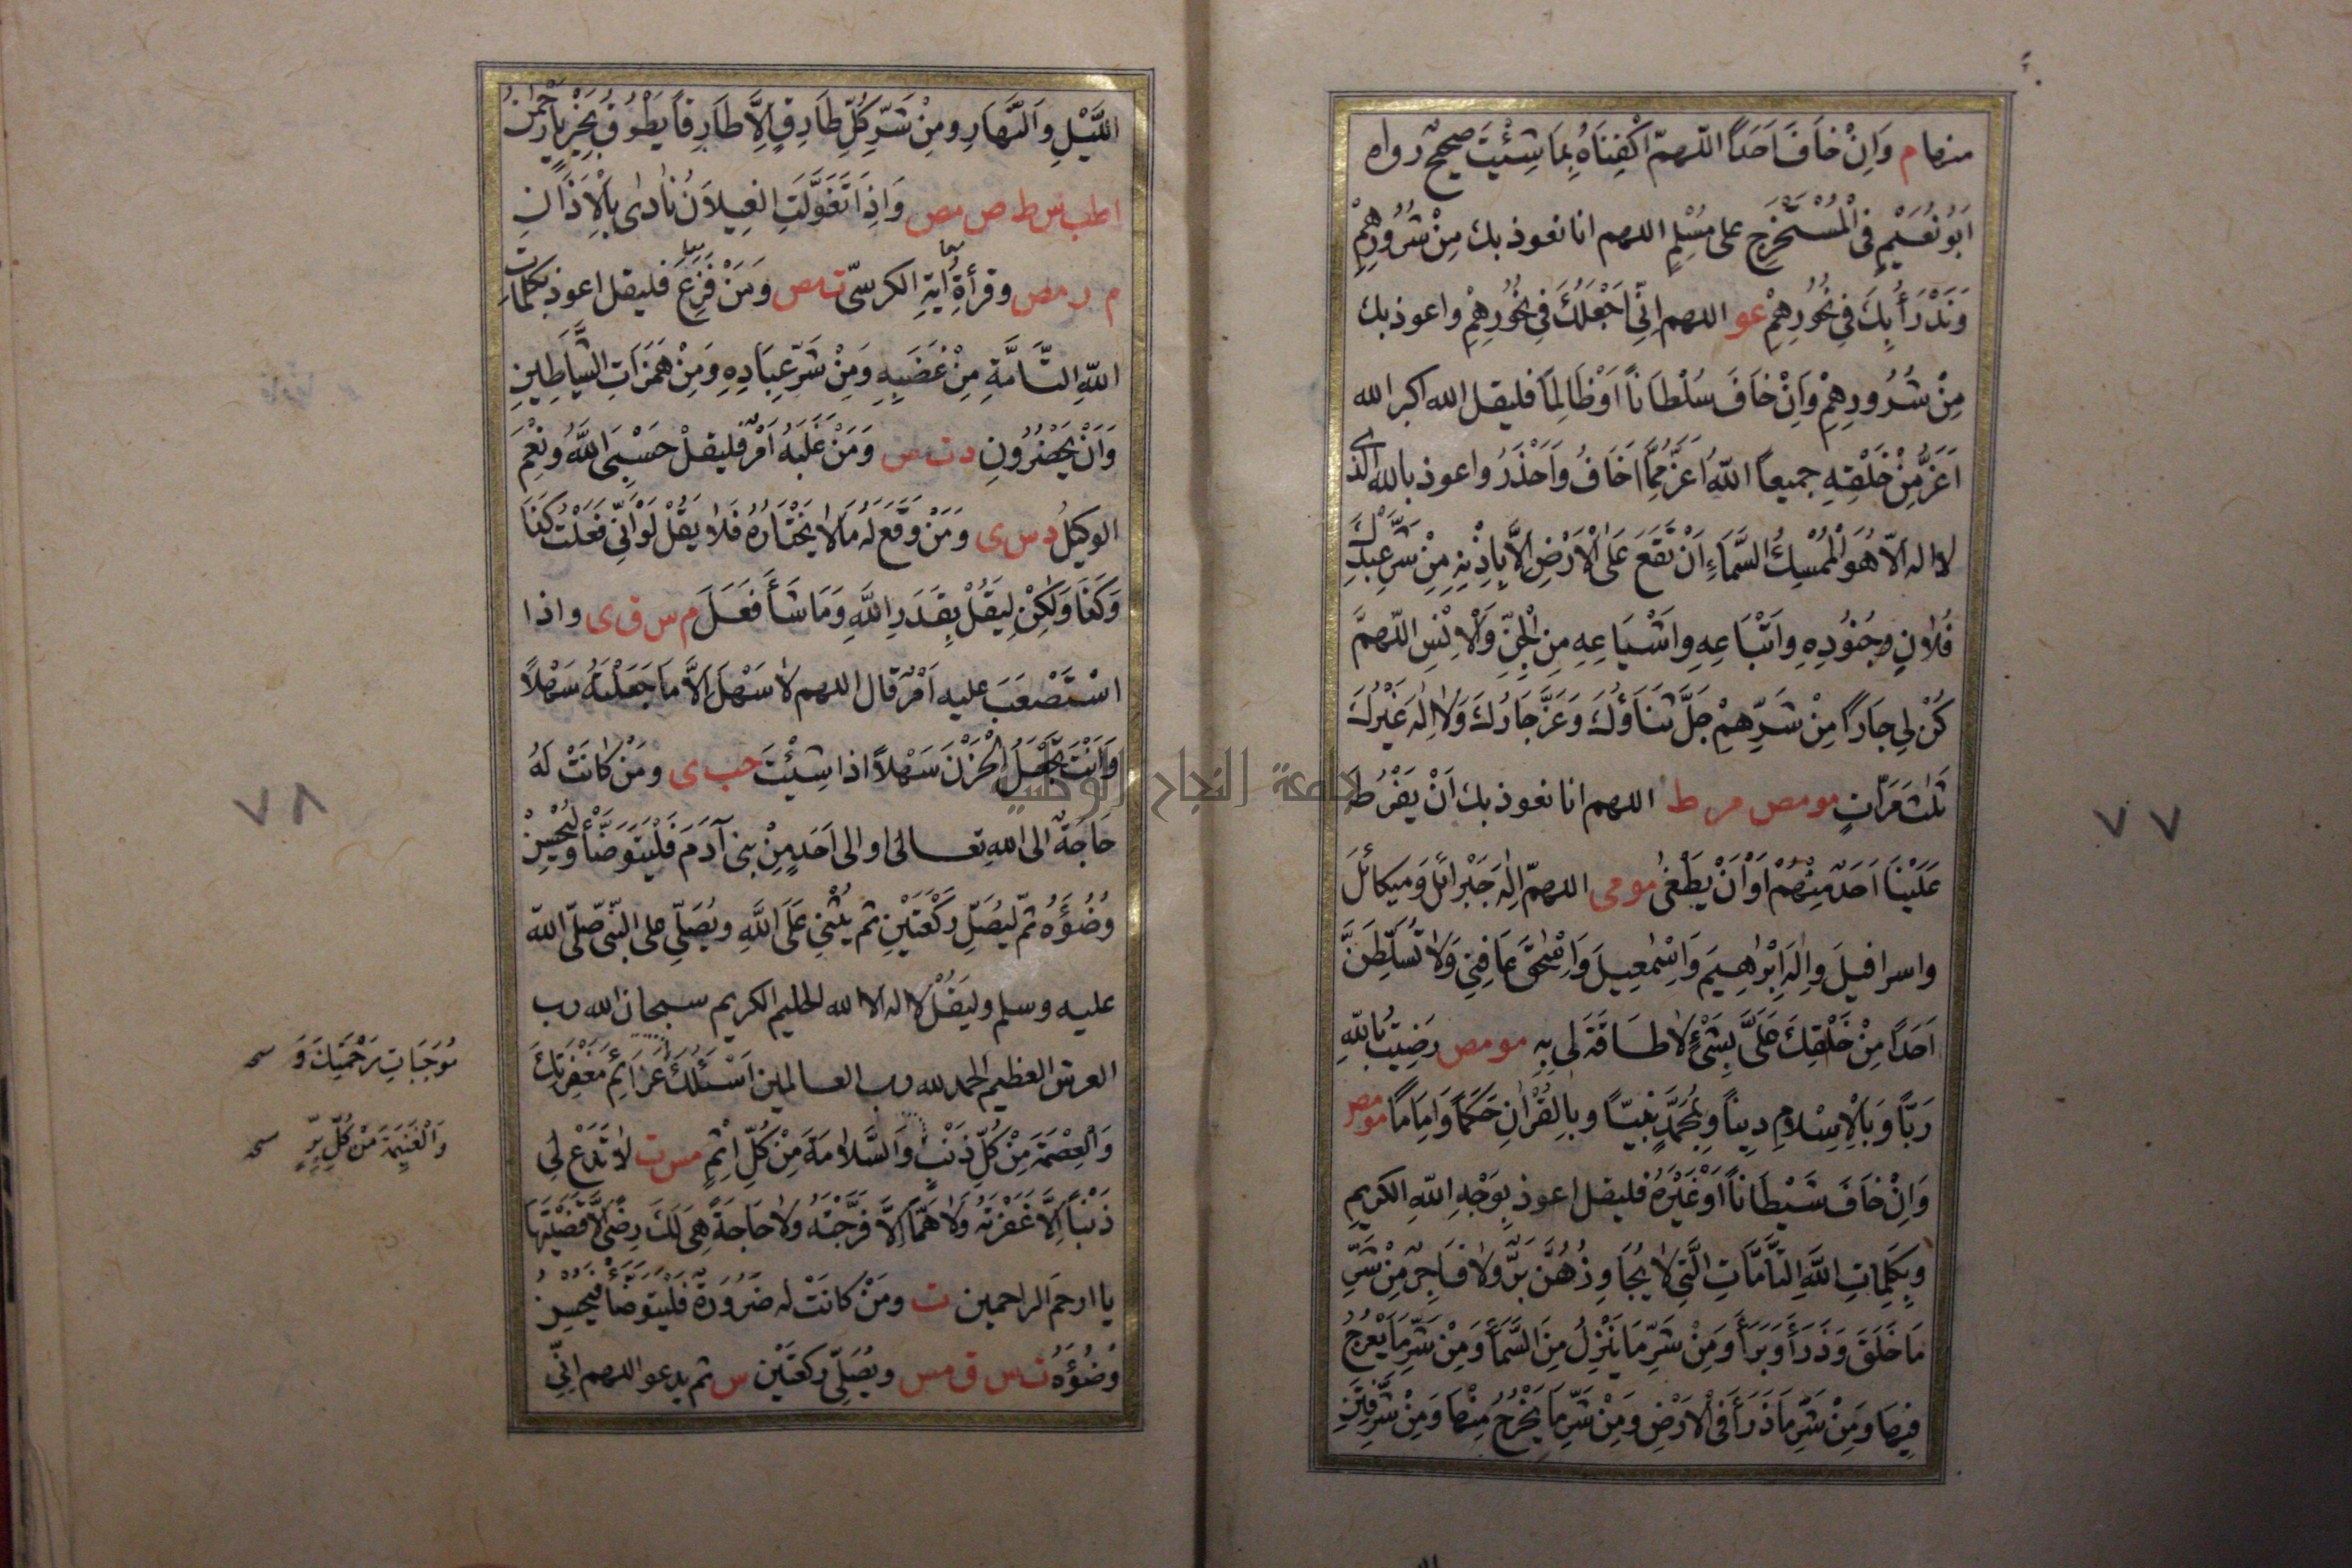 منها م وَاِنْ خَافَ اَحَدًا اللّهمّ اكْفِنَاهُ بِمَا شِئْتَ صحيحٌ رواه
اَبُو نُعَيْمٍ فِى الْمُسْتَخْرَجِ على مُسْلِمٍ اللهم انا نعوذ بك مِنْ شُرُورِهِمْ
وَنَدْرَأُ بِكَ فِي نُحُورِهِمْ عو اللهم اِنِّى اَجْعَلُكَ فِي نُحُورِهِمْ واعوذ بك
مِنْ شُرُورِهِمْ وَاِنْ خَافَ سُلْطَاناً اَوْ ظَالِماً فليقل الله اكبر الله
اَعَزُّ مِنْ خَلْقِهِ جميعاً اللّهُ اَعَزُّ مِمَّا اَخَافُ وَاَحْذَرُ واعوذ بالله الذى
لا اله الّا هُوَ الْمُمْسِكُ السَّمَاءِ اَنْ تَقَعَ عَلَى الْاَرْضِ اِلَّا بِاِذْنِهِ مِنْ شَرِّ عَبْدِكَ
فُلَانٍ وَجُنُودِهِ وَاَتْبَاعِهِ وَاَشْيَاعِهِ مِنَ الْجِنِّ وَالْاِنْسِ اللّهمَّ
كُنْ لِي جَاراً مِنْ شَرِّهِمْ جَلَّ ثَنَاؤُكَ وَعَزَّ جَارُكَ وَلَا اِلٰهَ غَيْرُكَ
ثَلٰثَ مَرَّاتٍ مو مص مر ط اللهم انا نعوذ بك اَنْ يَفْرُطَ
عَلَيْنَا اَحَدٌ مِنْهُمْ اَوْ اَنْ يَطْغٰى مو مى اللهمّ اِلٰهَ جَبْرَائلَ وَميكائلَ
واسرافيلَ وَاِلٰهَ اِبْرٰهِيمَ وَاِسْمٰعِيلَ وَاِسْحٰقَ عَافِنِي وَلَا تُسَلِّطَنَّ
اَحَدًا مِنْ خَلْقِكَ عَلَىَّ بِشَىْءٍ لَا طَاقَةَ لِى بِهِ مو مص رَضِيتُ بِاللّهِ
رَبًّا وَبِالْاِسْلَامِ دِيناً وَبِمُحَمَّدٍ نَبِيّاً وبِالْقُرْاٰنِ حَكَمًا وَاِمَامًا مو مص
وَاِنْ خَافَ شَيْطَاناً اَوْ غَيْرَهُ فليقل اعوذ بِوَجْهِ اللّهِ الكريمِ
وَبِكَلِمَاتِ اللَّهِ التَّامَّاتِ الَّتِي لَا يُجَاوِزُهُنَّ بَرٌّ وَلَا فَاجِرٌ مِنْ شَرِّ
مَا خَلَقَ وَذَرَأَ وَبَرَأَ وَمِنْ شَرِّ مَا يَنْزِلُ مِنَ السَّمَاءِ وَمِنْ شَرِّ مَا يَعْرُجُ
فِيهَا وَمِنْ شَرِّ مَا ذَرَأَ فِى الْاَرْضِ وَمِنْ شَرِّ مَا يَخْرُجُ مِنْهَا وَمِنْ شَرِّ فِتَنِ
٧٧
اللَّيْلِ وَالنَّهَارِ وَمِنْ شَرِّ كُلِّ طَارِقٍ اِلَّا طَارِقاً يَطْرُقُ بِخَيْرٍ يَا رَحْمٰنُ
اطب س ط ص مص وَاِذَا تَغَوَّلَتِ الغِيلَانُ نَادٰى بِالْاَذَانِ
م ر مص وقرأةُ اٰيةِ الكرسىّ ت مص وَمَنْ فَزِعَ فليقل اعوذ بكلمات
اللّهِ التَّامَّةِ مِنْ غَضَبِهِ وَمِنْ شَرِّ عِبَادِهِ وَمِنْ هَمَزَاتِ الشَّيَاطِينِ
وَاَنْ يَحْضُرُونِ د ت س وَمَنْ غَلَبَهُ اَمْرٌ فليقلْ حَسْبِىَ اللَّهُ وَنِعْمَ
الوكيلُ د س ى وَمَنْ وَقَعَ لَهُ مَا لَا يَخْتَارُهُ فَلَا يَقُلْ لَوْ اَنِّى فَعَلْتُ كَذَا
وَكَذَا وَلٰكِنْ لِيَقُلْ بِقَدَرِ اللَّهِ وَمَا شَاءَ فَعَلَ م س ق ى واذا
اسْتَصْعَبَ عليه اَمْرٌ قال اللهم لَا سَهْلَ اِلَّا مَا جَعَلْتَهُ سَهْلاً
وَاَنْتَ تَجْعَلُ الْحَزْنَ سَهْلاً اذا شِئْتَ حب ى ومَنْ كَانَتْ لَهُ
حَاجَةٌ الى اللهِ تعالى او الى اَحَدٍ مِنْ بنى آدَمَ فَلْيَتَوَضَّأْ وَلْيُحْسِنْ
وُضُوءَهُ ثُمّ لْيُصَلِّ رَكْعَتَيْنِ ثم يُثْنِي عَلَى اللَّهِ ويُصَلِّي على النّبىّ صلّى اللّه
عليه وسلم وليَقُلْ لا اله الا الله الحليم الكريم سبحان الله رب
العرش العظيم الحمد لله رب العالمين اَسْئَلُكَ عَزَائِمَ مَغْفِرَتِكَ
وَالْعِصْمَةَ مِنْ كُلِّ ذَنْبٍ وَالسَّلَامَةَ مِنْ كُلِّ اِثْمٍ مس ت لَا تَدَعْ لِى
ذَنْبًا اِلَّا غَفَرْتَهُ وَلَا هَمًّا اِلَّا فَرَّجْتَهُ وَلَا حَاجَةً هِىَ لَكَ رِضًى اِلَّا قَضَيْتَهَا
يا ارحَمَ الراحمين ت ومَنْ كَانَتْ له ضَرُورَةٌ فَلْيَتَوَضَّأْ فَيُحْسِنُ
وُضُوءَهُ ت س ق مس ويُصَلِّى ركعَتَيْنِ س ثم يدعو اللهم اِنِّى
٧٨
مُوجَبَاتِ رَحْمَتِكَ وَ
وَالْغَنِيمَةَ مِنْ كُلِّ بِرٍّ
جامعة النجاح الوطنية